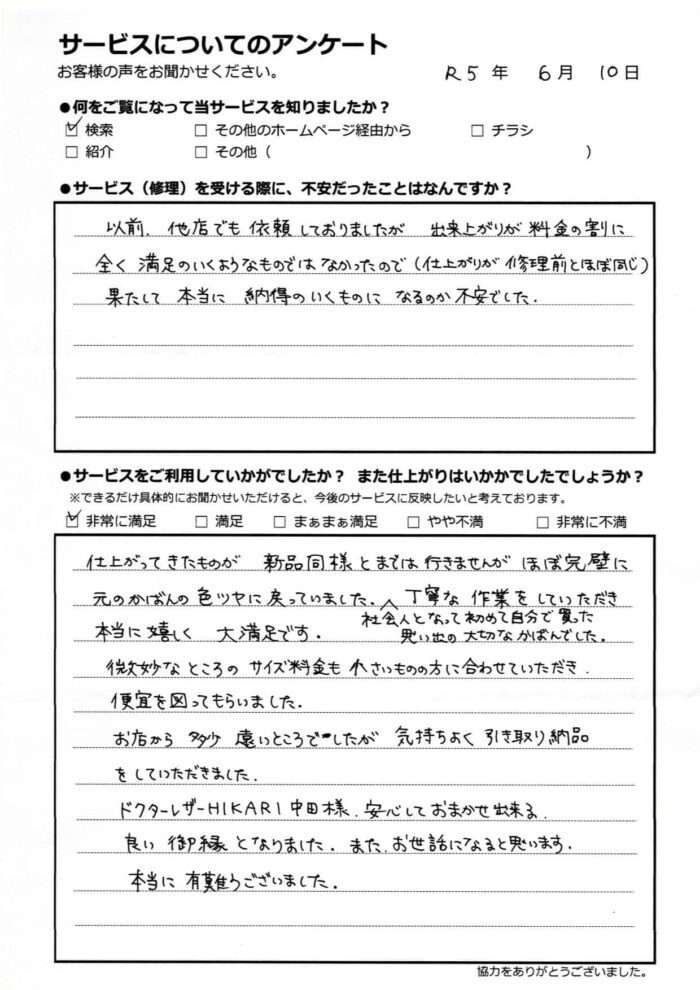 サービスについてのアンケート
お客様の声をお聞かせください。 R5年 6月 10日
●何をご覧になって当サービスを知りましたか?
☑ 検索 □ その他のホームページ経由から □ チラシ
□ 紹介 □ その他( )
●サービス(修理)を受ける際に、不安だったことはなんですか?
以前、他店でも依頼しておりましたが 出来上がりが料金の割に
全く満足のいくようなものではなかったので(仕上がりが修理前とほぼ同じ)
果たして本当に納得のいくものになるのか不安でした.
●サービスをご利用していかがでしたか? また仕上がりはいかかでしたでしょうか?
※できるだけ具体的にお聞かせいただけると、今後のサービスに反映したいと考えております。
☑ 非常に満足 □ 満足 □ まぁまぁ満足 □ やや不満 □ 非常に不満
仕上がってきたものが 新品同様とまでは行きませんが ほぼ完璧に
元のかばんの色ツヤに戻っていました. ヘ 丁寧な作業をしていただき
社会人となって初めて自分で買った
本当に嬉しく 大満足です. 思い出の大切なかばんでした.
微妙なところのサイズ料金も小さいものの方に合わせていただき.
便宜を図ってもらいました.
お店から多少遠いところでしたが 気持ちよく引き取り納品
をしていただきました.
ドクターレザーHIKARI中田様. 安心しておまかせ出来る.
良い御縁となりました. また、お世話になると思います.
本当に有難うございました.
協力をありがとうございました。